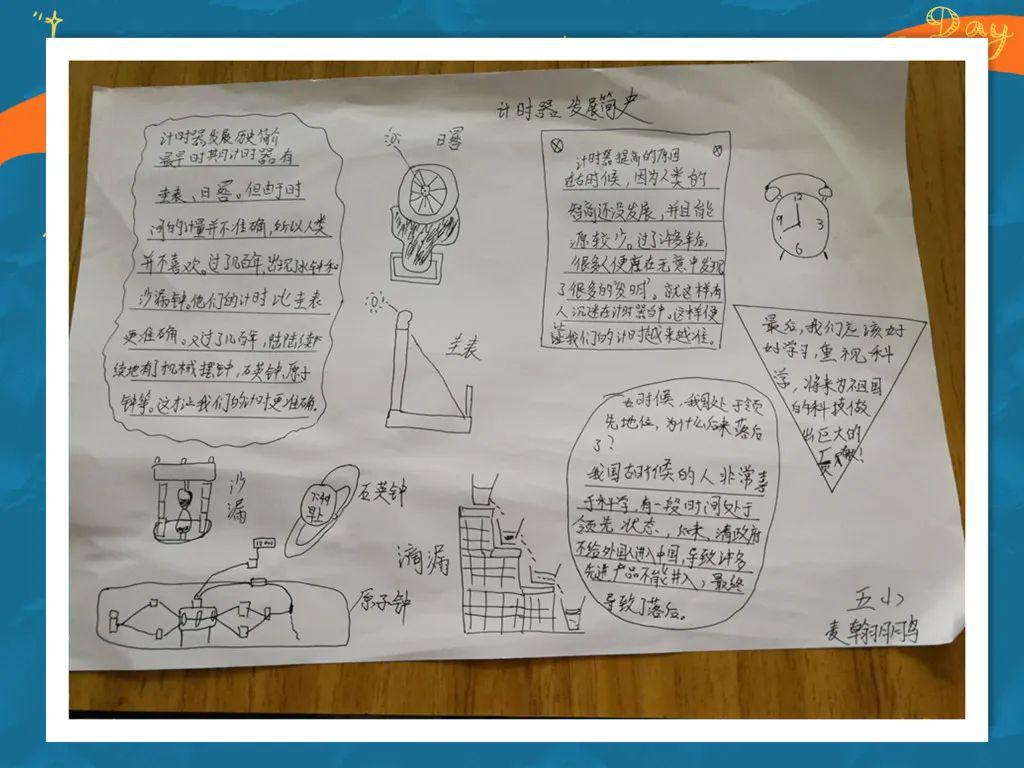 Day
计时器发展简史
计时器发展历史简介
最早时期计时器有
圭表、日晷。但由于时
间的计量并不准确,所以人类
并不喜欢。过了几百年,出现了水钟和
沙漏钟。他们的计时比圭表
更准确。又过了几百年,陆陆续
续地有了机械摆钟,石英钟,原子
钟等。这才让我们的计时更准确.
日晷
圭表
计时器提高的原因
古时候,因为人类的
智商还没发展,并且能
源较少。过了许多年后,
很多人便在无意中发现
了很多的发明。就这样有
人沉迷在计时器当中。这样便
让我们的计时越来越准。
12
9 3
6
最后,我们应该好
好学习,重视科
学,将来为祖国
的科技做
出巨大的
贡献!
古时候,我国处于领
先地位,为什么后来落后
了?
我国古时候的人非常善
于科学,有一段时间处于
领先状态,后来,清政府
不给外国人进入中国,导致许多
先进产品不能进入,最终
导致了落后。
沙
漏
石英钟
滴漏
原子钟
五小
麦翰